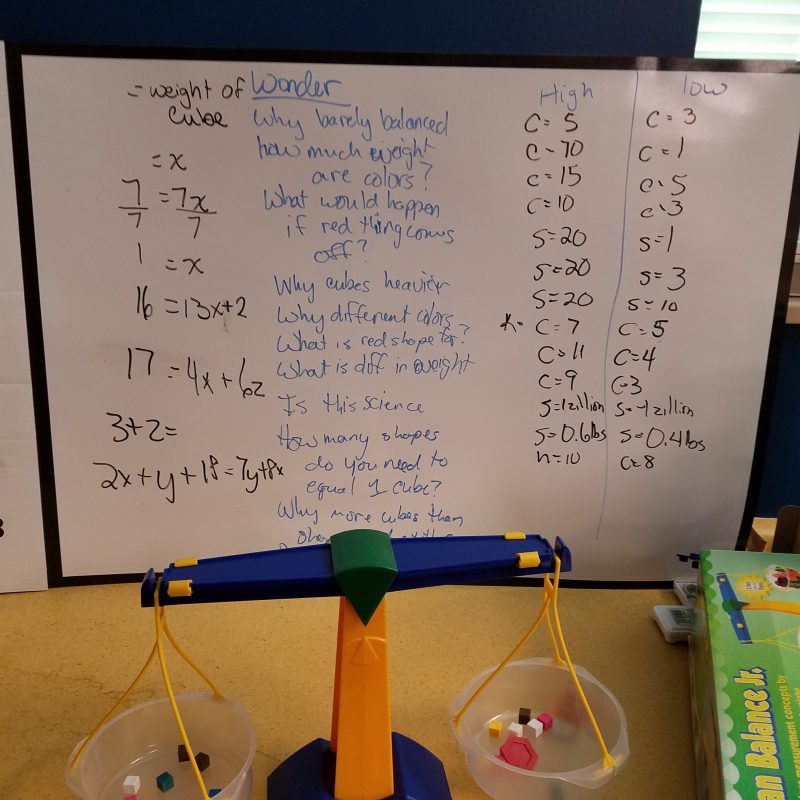 = weight of
cube
= x
7 = 7x
7 7
1 = x
16 = 13x+2
17 = 4x + 6z
3+2=
2x+y+18=7y+8x
Wonder
Why barely balanced
how much weight
are colors?
What would happen
if red thing comes
off?
Why cubes heavier
Why different colors
What is red shape for?
What is diff in weight
Is this science
How many shapes
do you need to
equal 1 cube?
Why more cubes than
High
C= 5
C= 70
C= 15
C= 10
S=20
S=20
S=20
K= C= 7
C= 11
C= 9
S=1zillion
S=0.6lbs
h=10
low
C= 3
C= 1
C= 5
C= 3
S=1
S=3
S=10
C=5
C=4
C=3
S=-1zillion
S=0.4lbs
C=8
an Balance Jr.
measurement concepts by